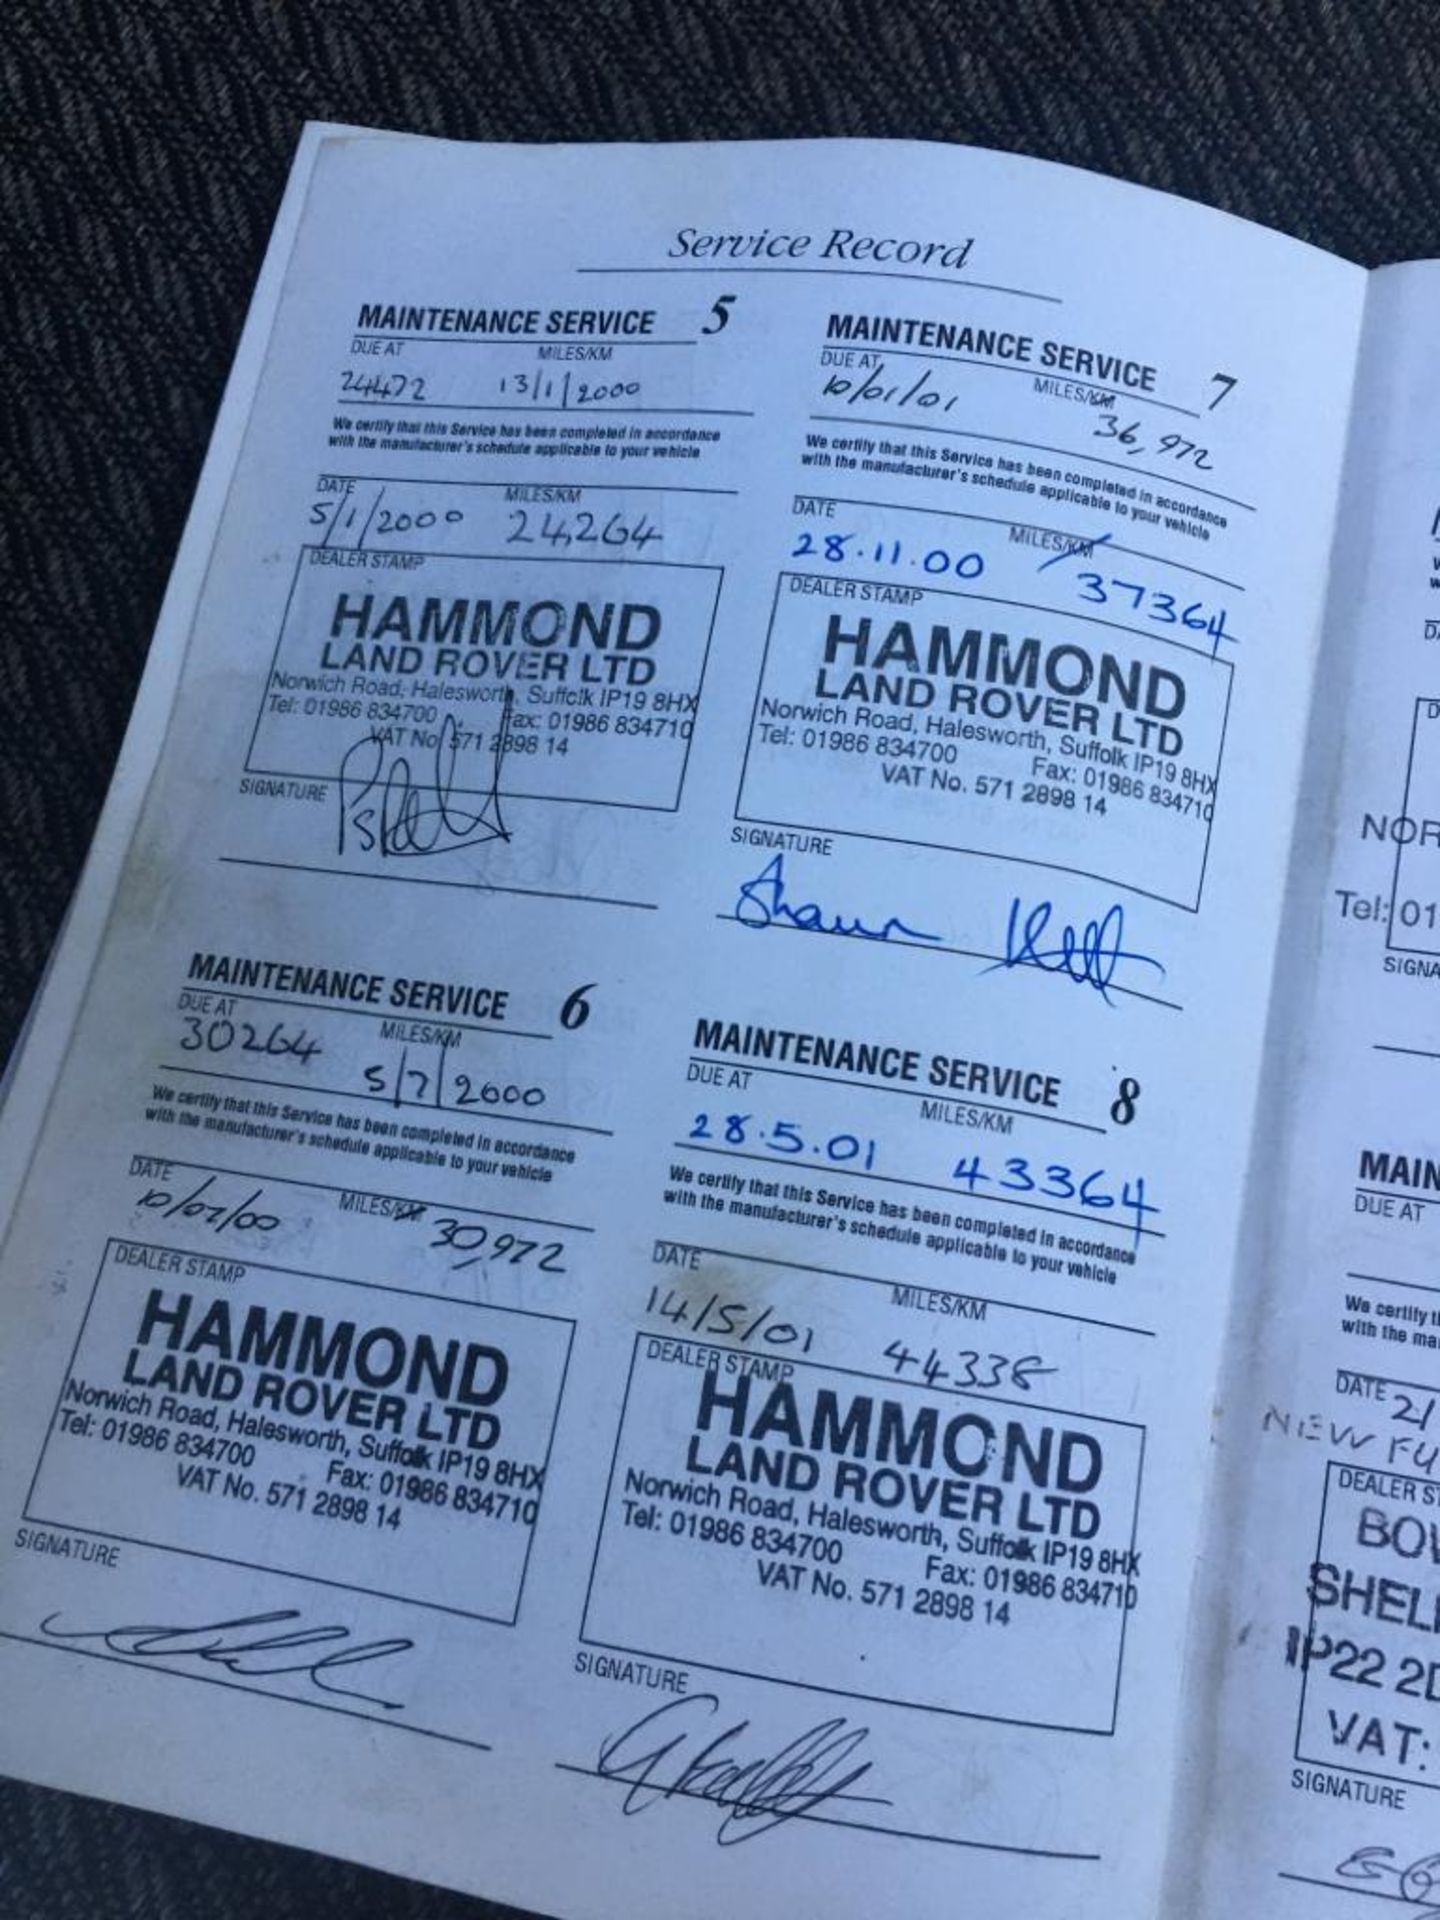 Service Record
MAINTENANCE SERVICE 5
DUE AT MILES/KM
24472 13/1/2000
We certify that this Service has been completed in accordance
with the manufacturer's schedule applicable to your vehicle
DATE MILES/KM
5/1/2000 24,264
DEALER STAMP
HAMMOND
LAND ROVER LTD
Norwich Road, Halesworth, Suffolk IP19 8HX
Tel: 01986 834700 Fax: 01986 834710
VAT No. 571 2898 14
SIGNATURE
MAINTENANCE SERVICE 6
DUE AT MILES/KM
30264 5/7/2000
We certify that this Service has been completed in accordance
with the manufacturer's schedule applicable to your vehicle
DATE MILES/KM
10/07/00 30,972
DEALER STAMP
HAMMOND
LAND ROVER LTD
Norwich Road, Halesworth, Suffolk IP19 8HX
Tel: 01986 834700 Fax: 01986 834710
VAT No. 571 2898 14
SIGNATURE
MAINTENANCE SERVICE 7
DUE AT MILES/KM
10/01/01 36,972
We certify that this Service has been completed in accordance
with the manufacturer's schedule applicable to your vehicle
DATE MILES/KM
28.11.00 37364
DEALER STAMP
HAMMOND
LAND ROVER LTD
Norwich Road, Halesworth, Suffolk IP19 8HX
Tel: 01986 834700 Fax: 01986 834710
VAT No. 571 2898 14
SIGNATURE
Shaun
MAINTENANCE SERVICE 8
DUE AT MILES/KM
28.5.01 43364
We certify that this Service has been completed in accordance
with the manufacturer's schedule applicable to your vehicle
DATE MILES/KM
14/5/01 44338
DEALER STAMP
HAMMOND
LAND ROVER LTD
Norwich Road, Halesworth, Suffolk IP19 8HX
Tel: 01986 834700 Fax: 01986 834710
VAT No. 571 2898 14
SIGNATURE
NOR
Tel: 01
SIGNA
MAIN
DUE AT
We certify t
with the ma
DATE 2/
NEW FU
DEALER S
BOW
SHEL
IP22 2
VAT:
SIGNATURE